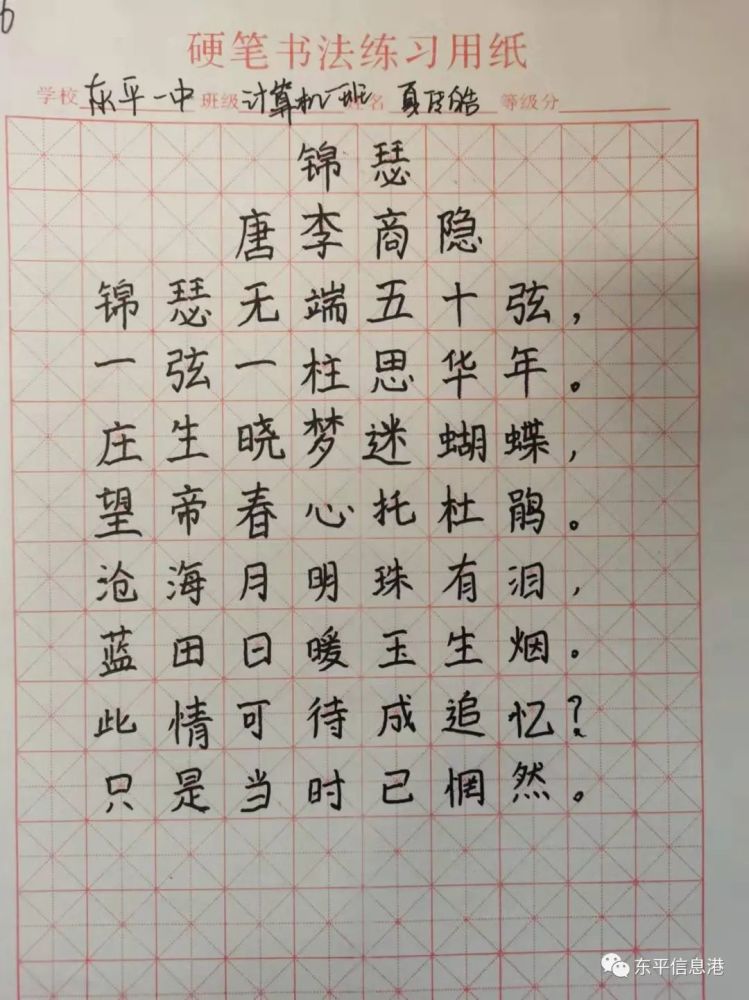 6
硬笔书法练习用纸
学校 东平一中 班级 计算机一班 姓名 夏传皓 等级分
锦瑟
唐李商隐
锦瑟无端五十弦,
一弦一柱思华年。
庄生晓梦迷蝴蝶,
望帝春心托杜鹃。
沧海月明珠有泪,
蓝田日暖玉生烟。
此情可待成追忆?
只是当时已惘然。
东平信息港